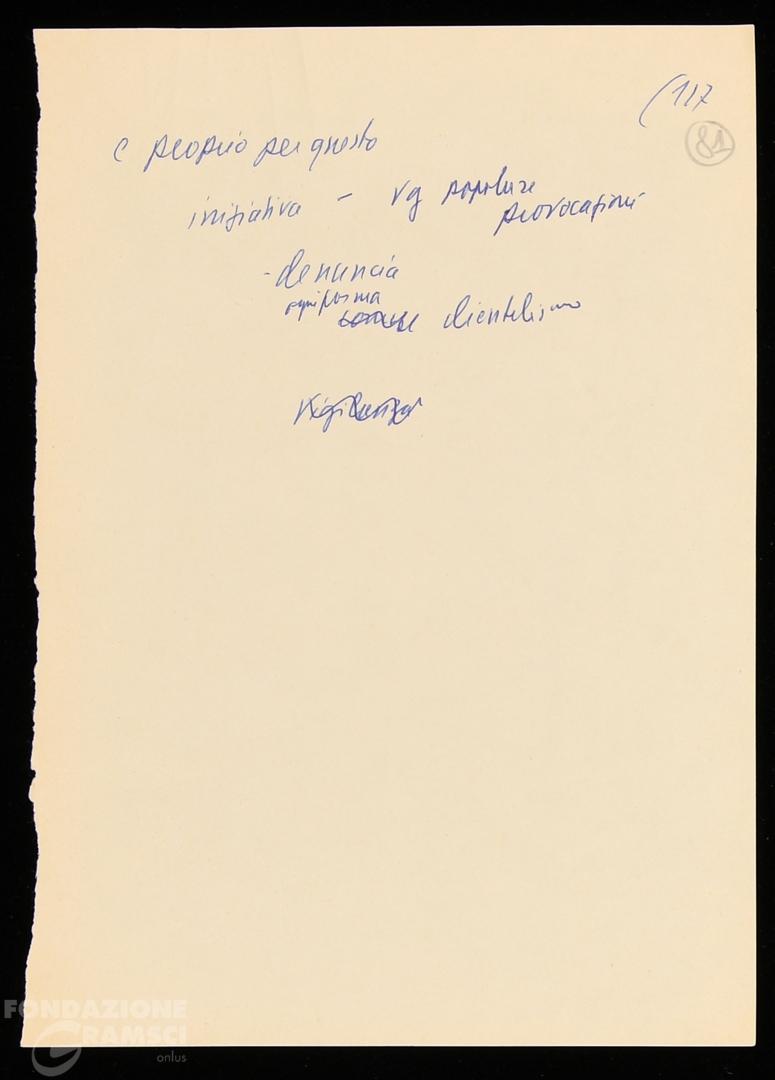 (117
81
e proprio per questo
iniziativa – vg popolare
provocazioni
- denuncia
ogni forma
clientelismo
vigilanza
FONDAZIONE
GRAMSCI
onlus